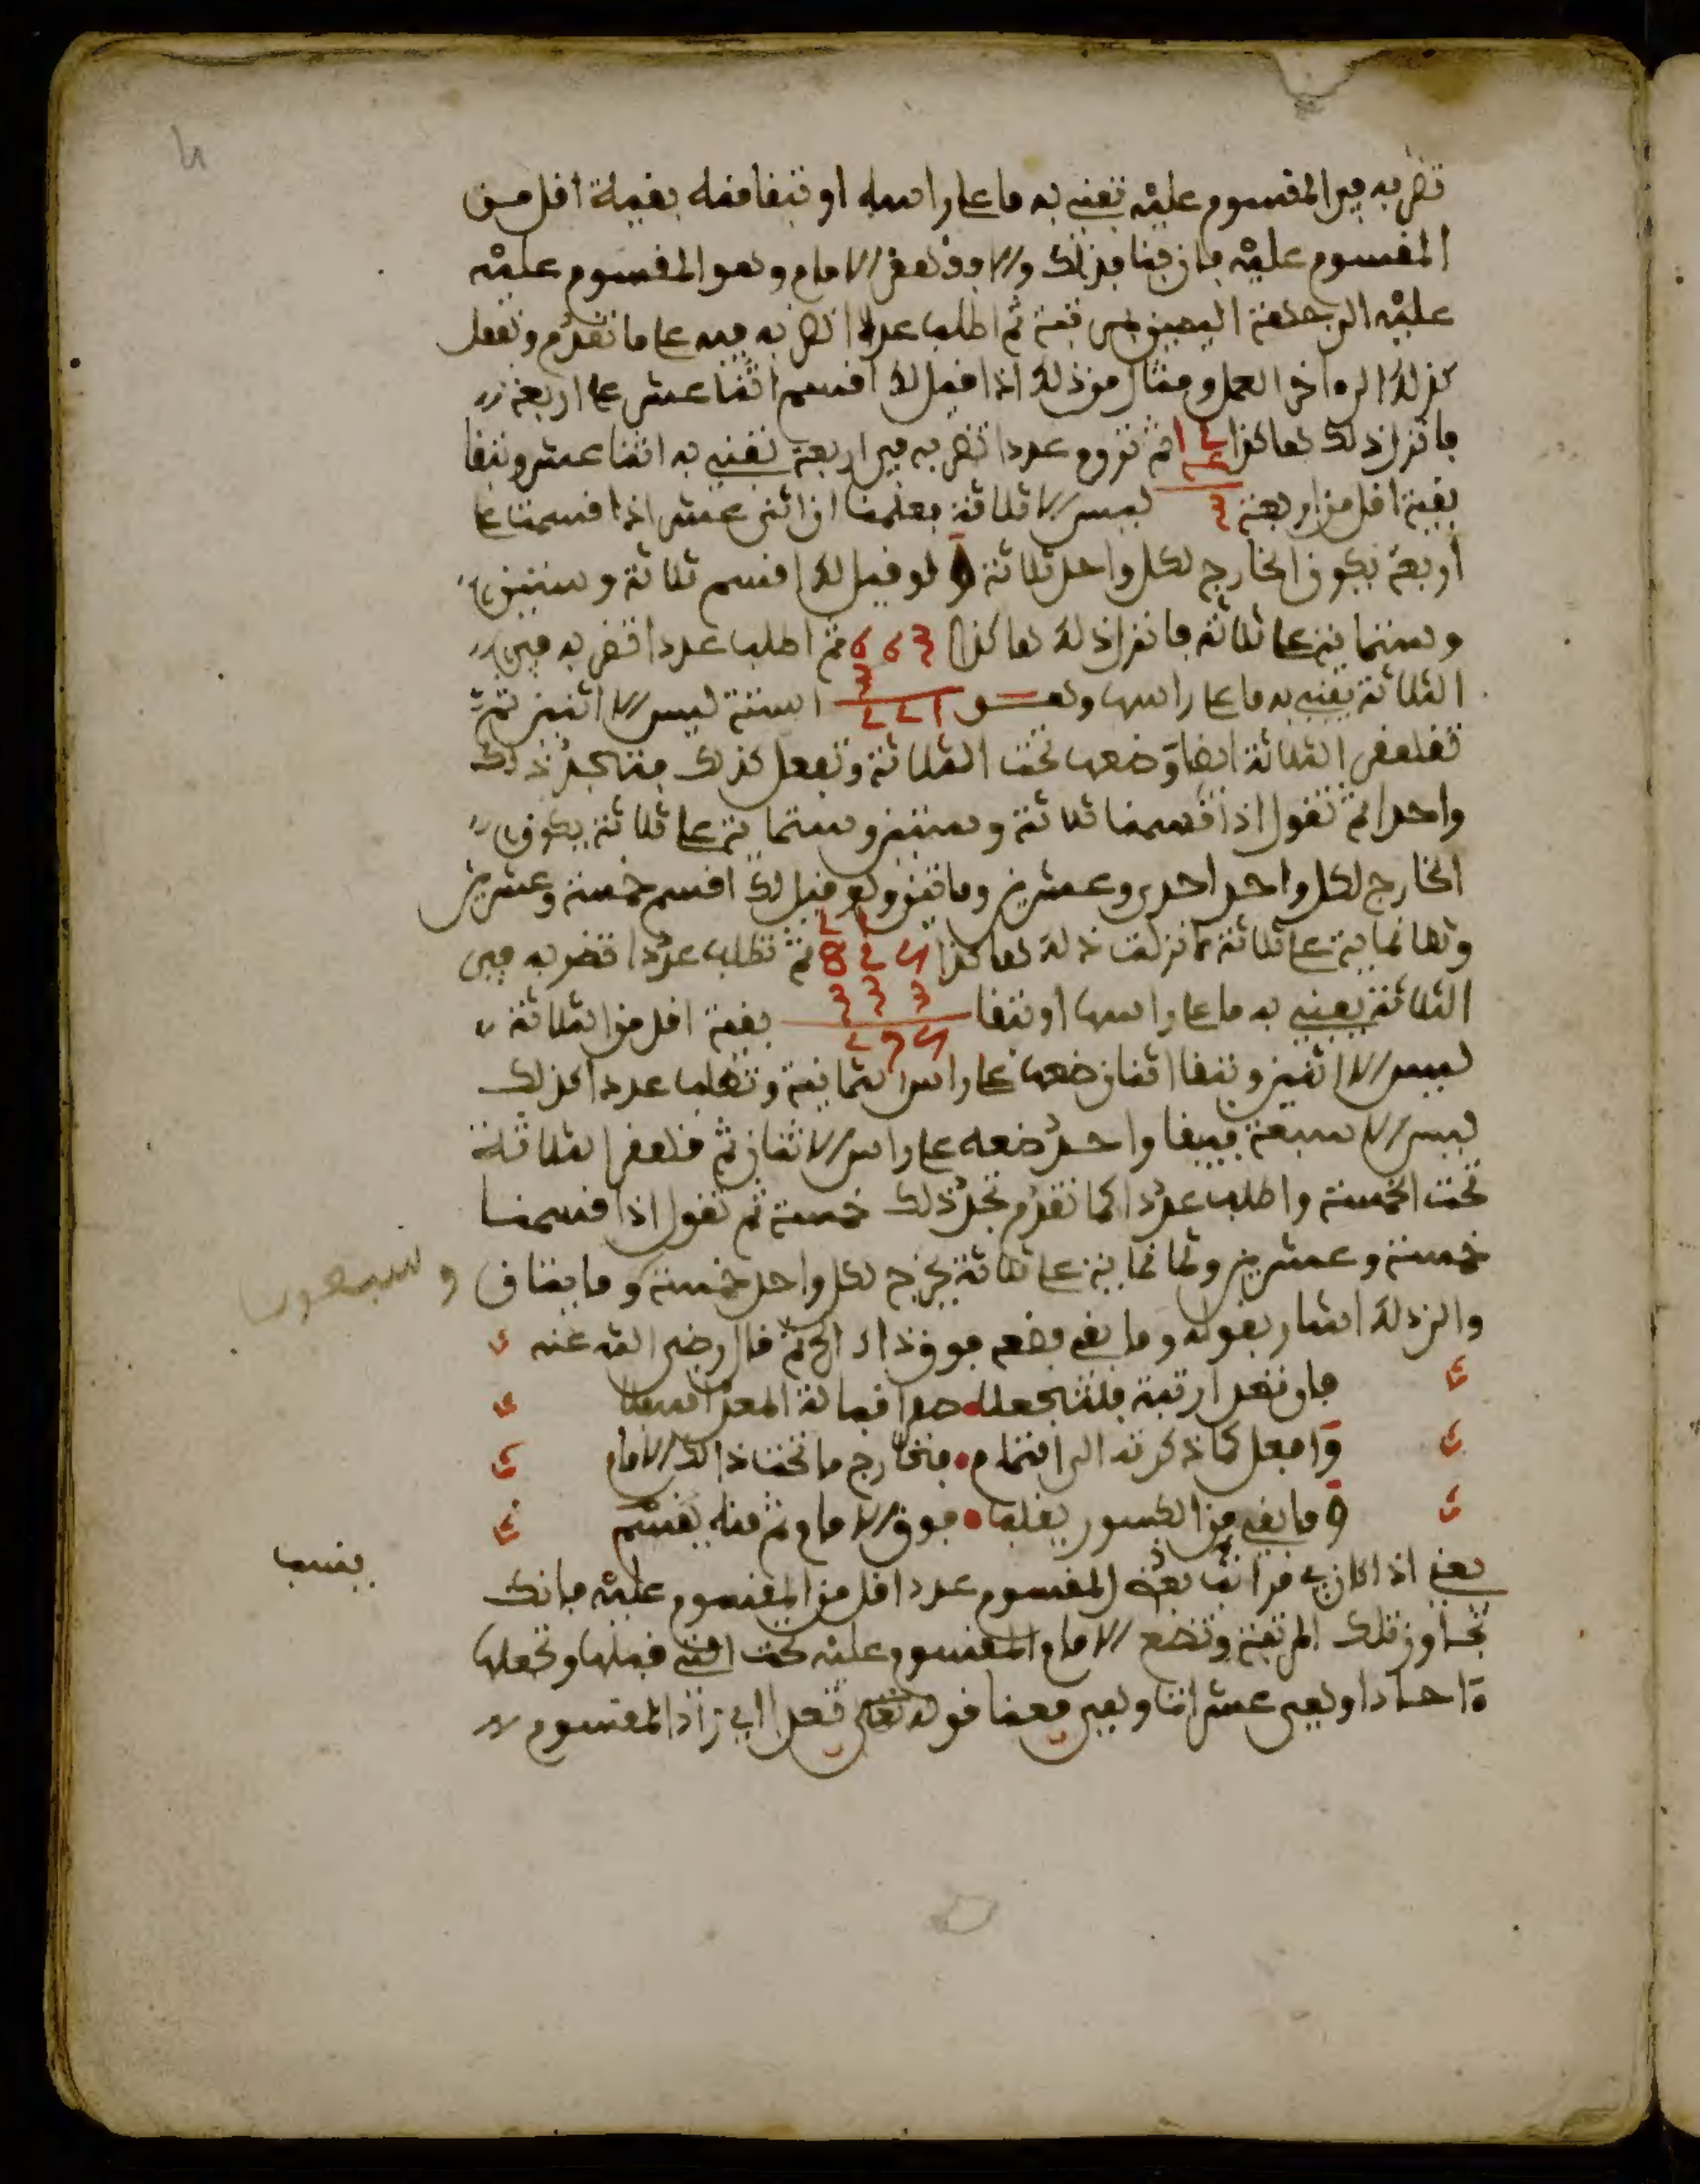 تضربه في المقسوم عليه تفني به ما على راسه او تبقا منه بقية اقل من
المقسوم عليه فان فنا فذلك والا فقهقر الامام وهو المقسوم عليه
عليه الى جهة اليمين ثم اطلب عددا تضربه فيه على ما تقدم وتفعل
كذلك الى ءاخر العمل ومثال من ذلك اذا قيل لك اقسم اثنا عشر على اربعة
فانزل ذلك هاكذا 12 ثم تروم عددا تضربه في اربعة تفني به اثنا عشر وتبقا
4
بقية اقل من اربعة 3 ليس الا ثلاثة فعلمنا ان اثني عشر اذا قسمنا على
اربعة يكون الخارج لكل واحد ثلاثة ولو قيل لك اقسم ثلاثة وستين
وستماية على ثلاثة فانزل ذلك هاكذا 663 ثم اطلب عددا تضربه في
3
الثلاثة يفني به ما على راسها وهو 221 الستة ليس الا اثنين ثم
تقهقر الثلاثة ايضا وضعها تحت الثلاثة وتفعل كذلك فتجد ذلك
واحدا ثم تقول اذا قسمنا ثلاثة وستين وستماية على ثلاثة يكون
الخارج لكل واحد احدى وعشرين ومايتين ولو قيل لك اقسم خمسة وعشرين
21
وثمانماية على ثلاثة فانزلت ذلك هاكذا 825 ثم تطلب عددا تضربه في
333
الثلاثة يفني به ما على راسها او تبقا بقية اقل من الثلاثة
275
ليس الا اثنين وتبقا اثنان ضعها على راس الثمانية وتطلب عددا كذلك
ليس الا سبعة فيبقا واحد ضعه على راس الاثنان ثم قهقر الثلاثة
تحت الخمسة واطلب عددا كما تقدم تجد ذلك خمسة ثم تقول اذا قسمنا
خمسة وعشرين وثمانماية على ثلاثة يخرج لكل واحد خمسة ومايتان وسبعون
والى ذلك اشار بقوله وما بقي فضعه فوق ذاك الخ ثم قال رضي الله عنه
وافعل كما ذكرته الى التمام • فخارج ما تحت ذاك الامام
وما بقي من الكسور يقلب • فوق الامام ثم منه يقسم
ينسب
يعني اذا كان في مراتب المقسوم عدد اقل من المقسوم عليه فانك
تجاوز تلك المرتبة وتضع الامام المقسوم عليه تحت التي قبلها وتجعلها
ءاحادا وهي عشراتا وهي معنا قوله تعدى اي زاد المقسوم